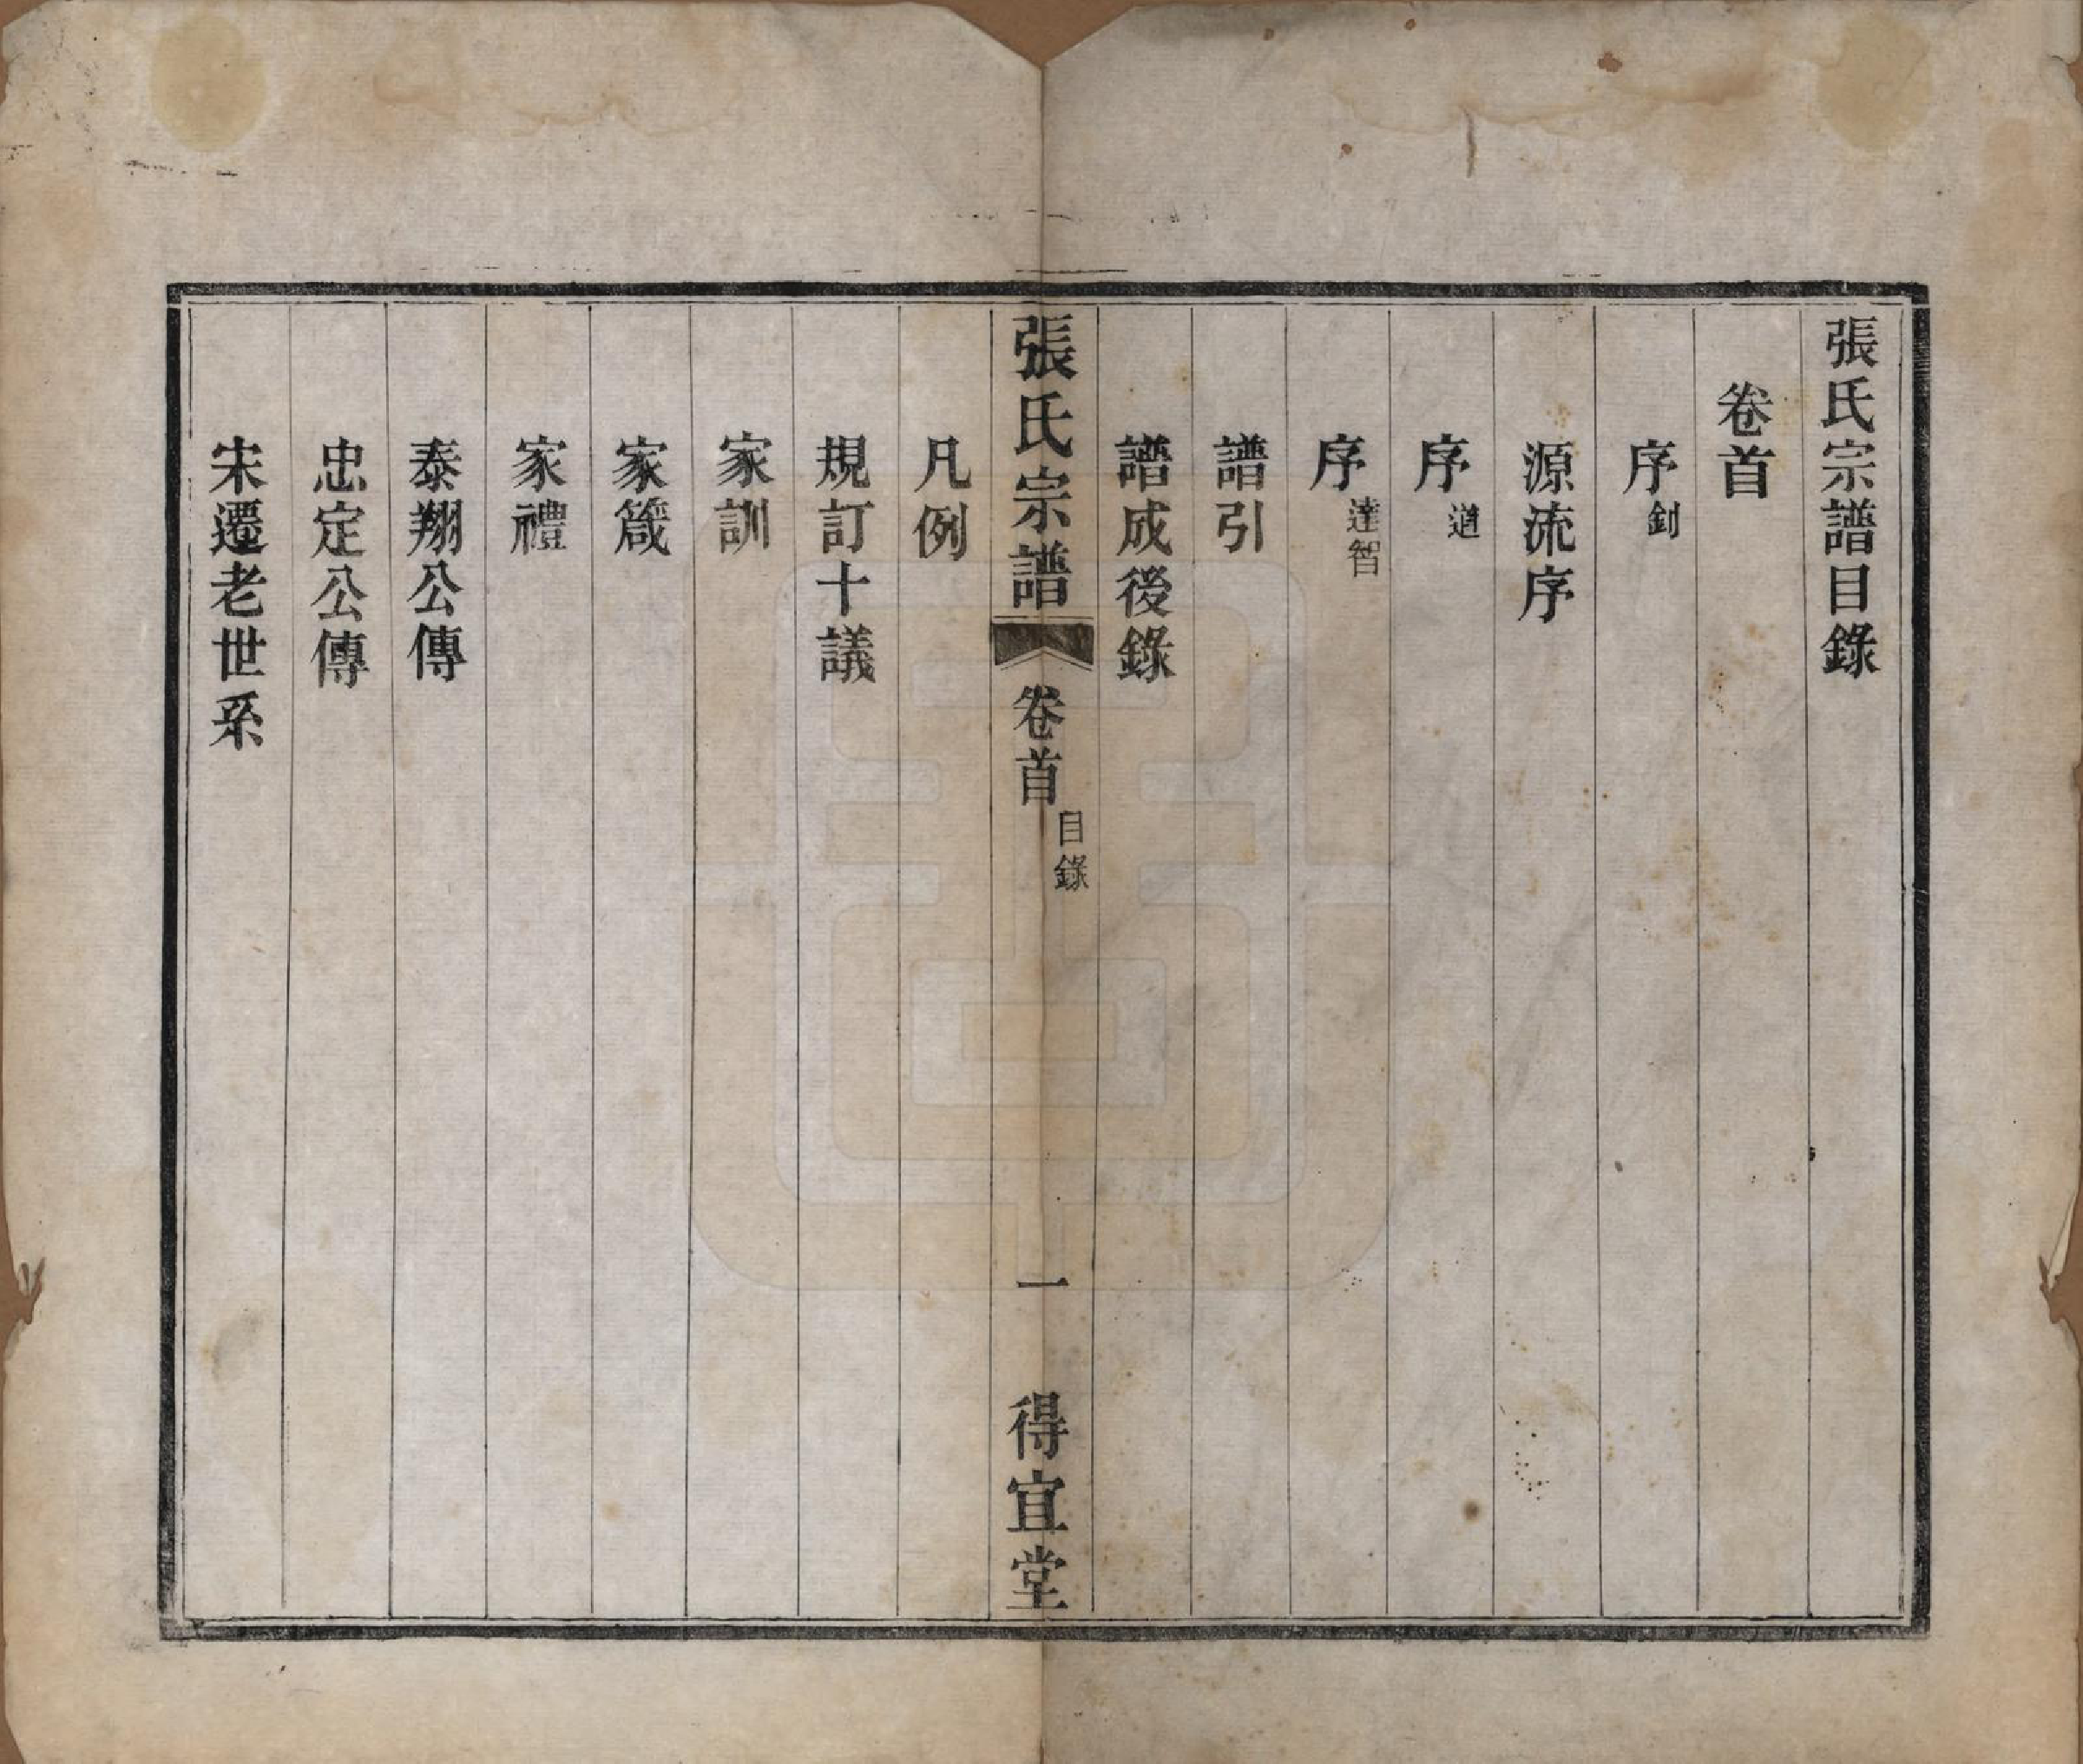 張氏宗譜目錄
卷首
序釗
源流序
序遒
序達智
譜引
譜成後錄
張氏宗譜 卷首 目錄 一 得宜堂
凡例
規訂十議
家訓
家箴
家禮
泰翔公傳
忠定公傳
宋遷老世系